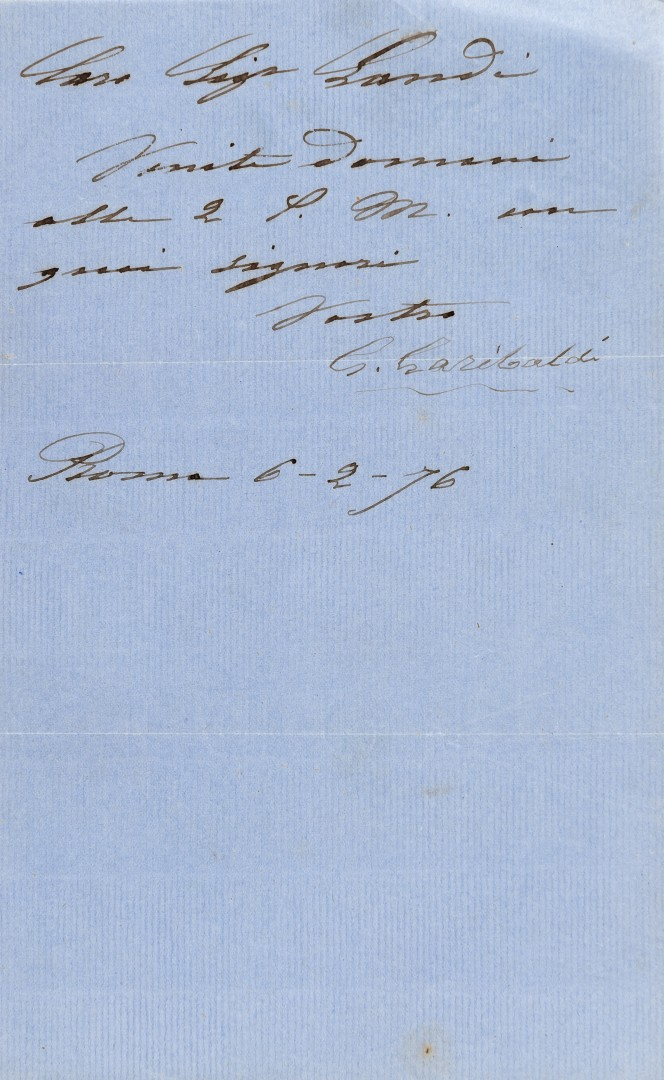 Caro Sigr Landi
Venite domani
alle 2 P. M. con
quei signori
Vostro
G. Garibaldi
Roma 6-2-76